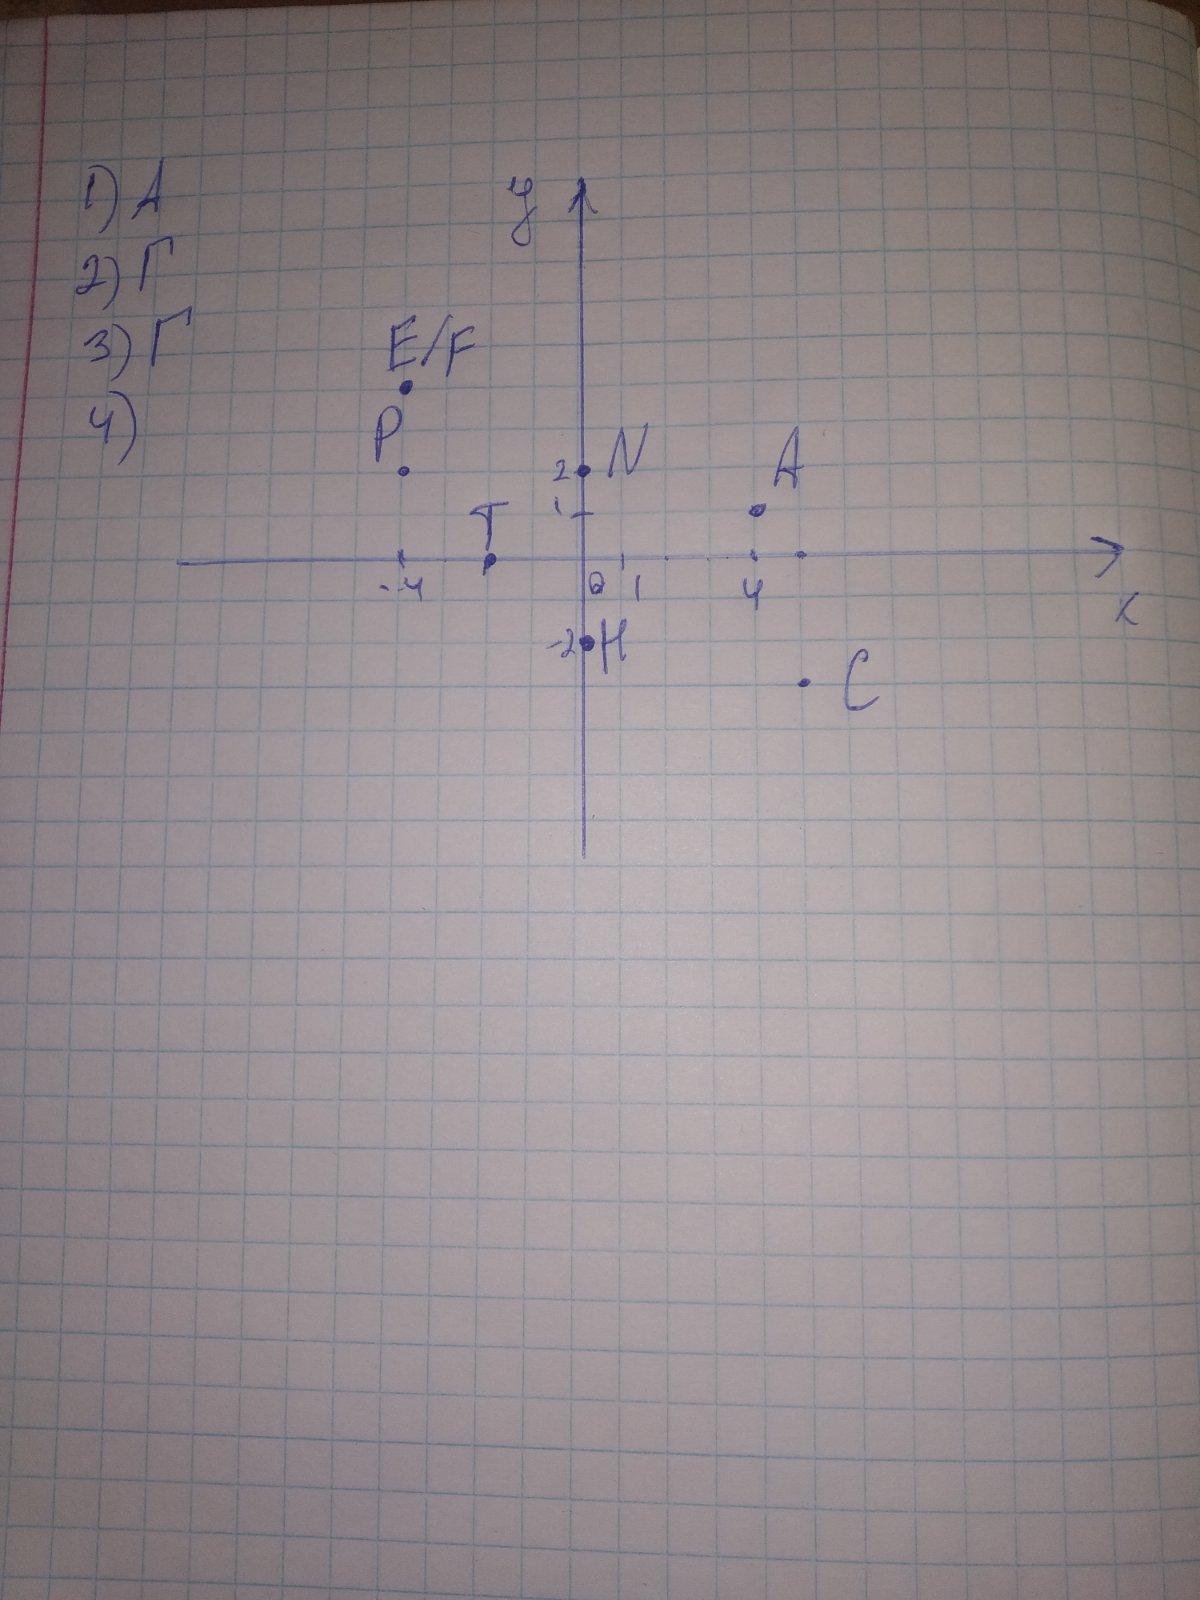 1) А
2) Г
3) Г
4)
y
E/F
P
2 N
A
1
T
-4 0 1 4
x
-2 H
C